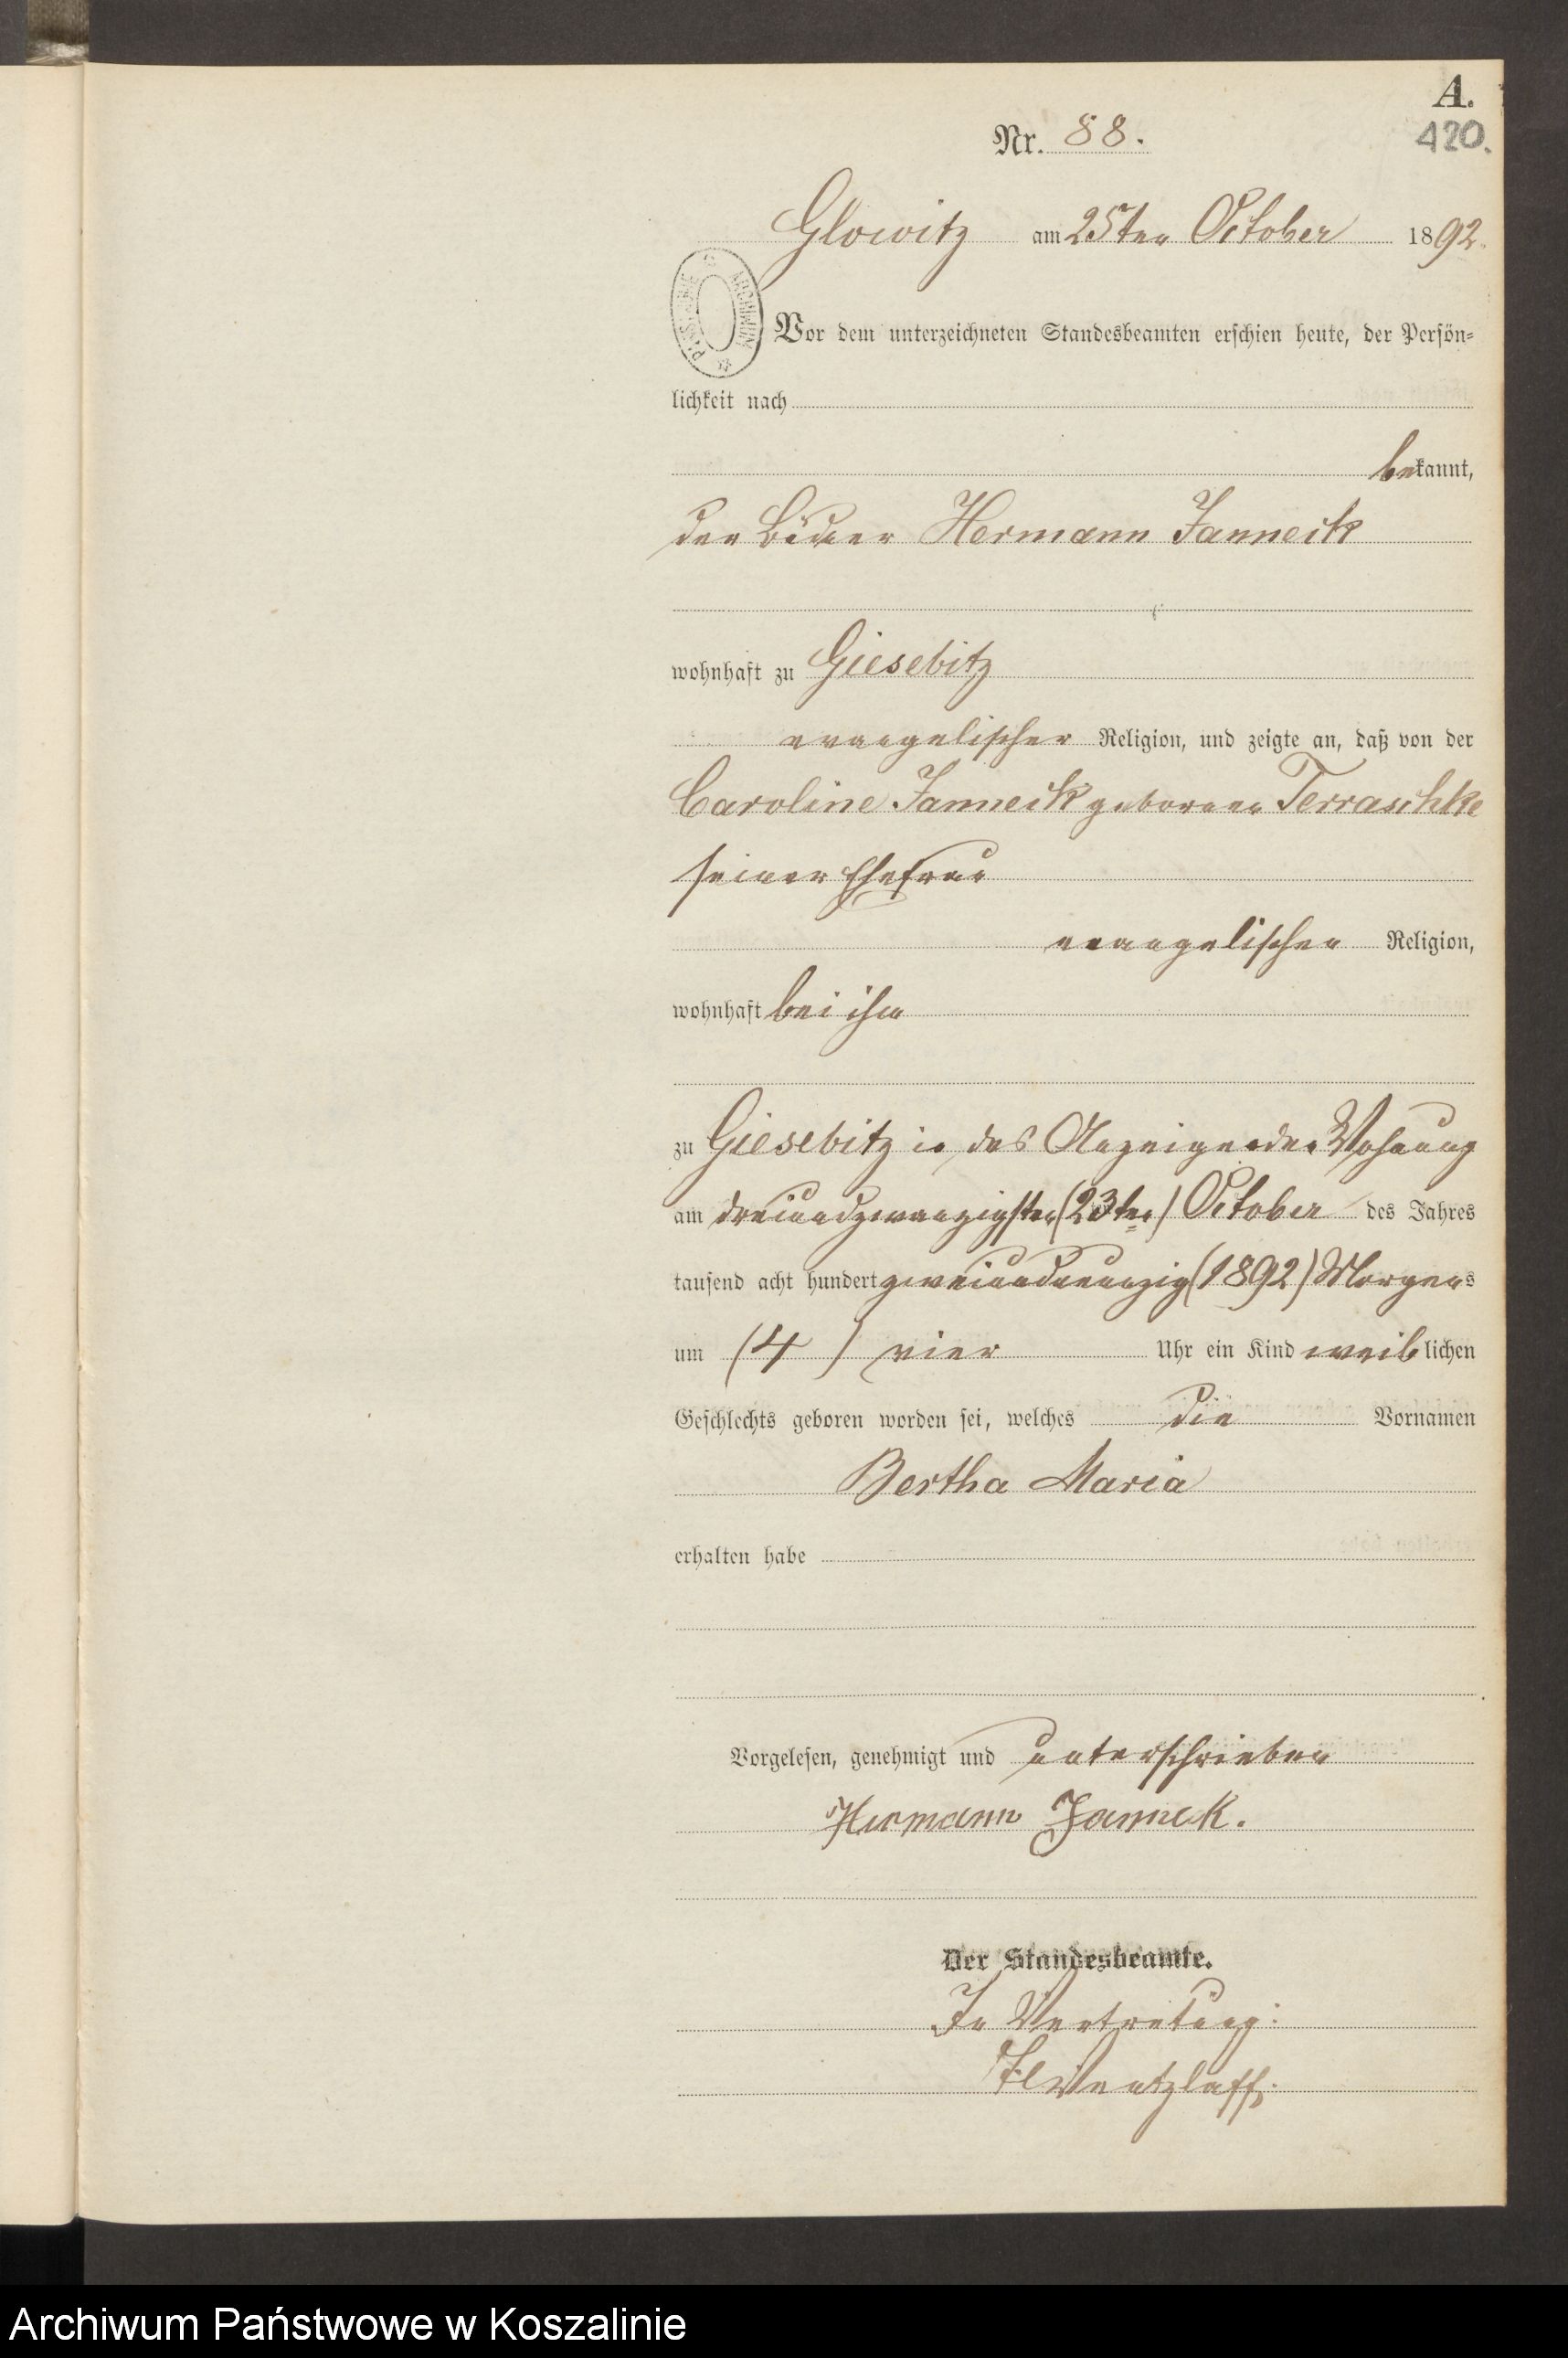 A.
Nr. 88. 420.
Glowitz am 25ten October 1892.
ARCHIWUM PAŃSTWOWE
Vor dem unterzeichneten Standesbeamten erschien heute, der Persön-
lichkeit nach
bekannt,
der Büdner Hermann Janneck
wohnhaft zu Giesebitz
evangelischer Religion, und zeigte an, daß von der
Caroline Janneck geborenen Terraschke
seiner Ehefrau
evangelischer Religion,
wohnhaft bei ihm
zu Giesebitz in des Anzeigenden Wohnung
am dreiundzwanzigsten (23ten) October des Jahres
tausend acht hundert zweiundneunzig (1892) Morgens
um (4) vier Uhr ein Kind weiblichen
Geschlechts geboren worden sei, welches die Vornamen
Bertha Maria
erhalten habe
Vorgelesen, genehmigt und unterschrieben
Hermann Janneck.
Der Standesbeamte.
In Vertretung:
Wentzlaff.
Archiwum Państwowe w Koszalinie